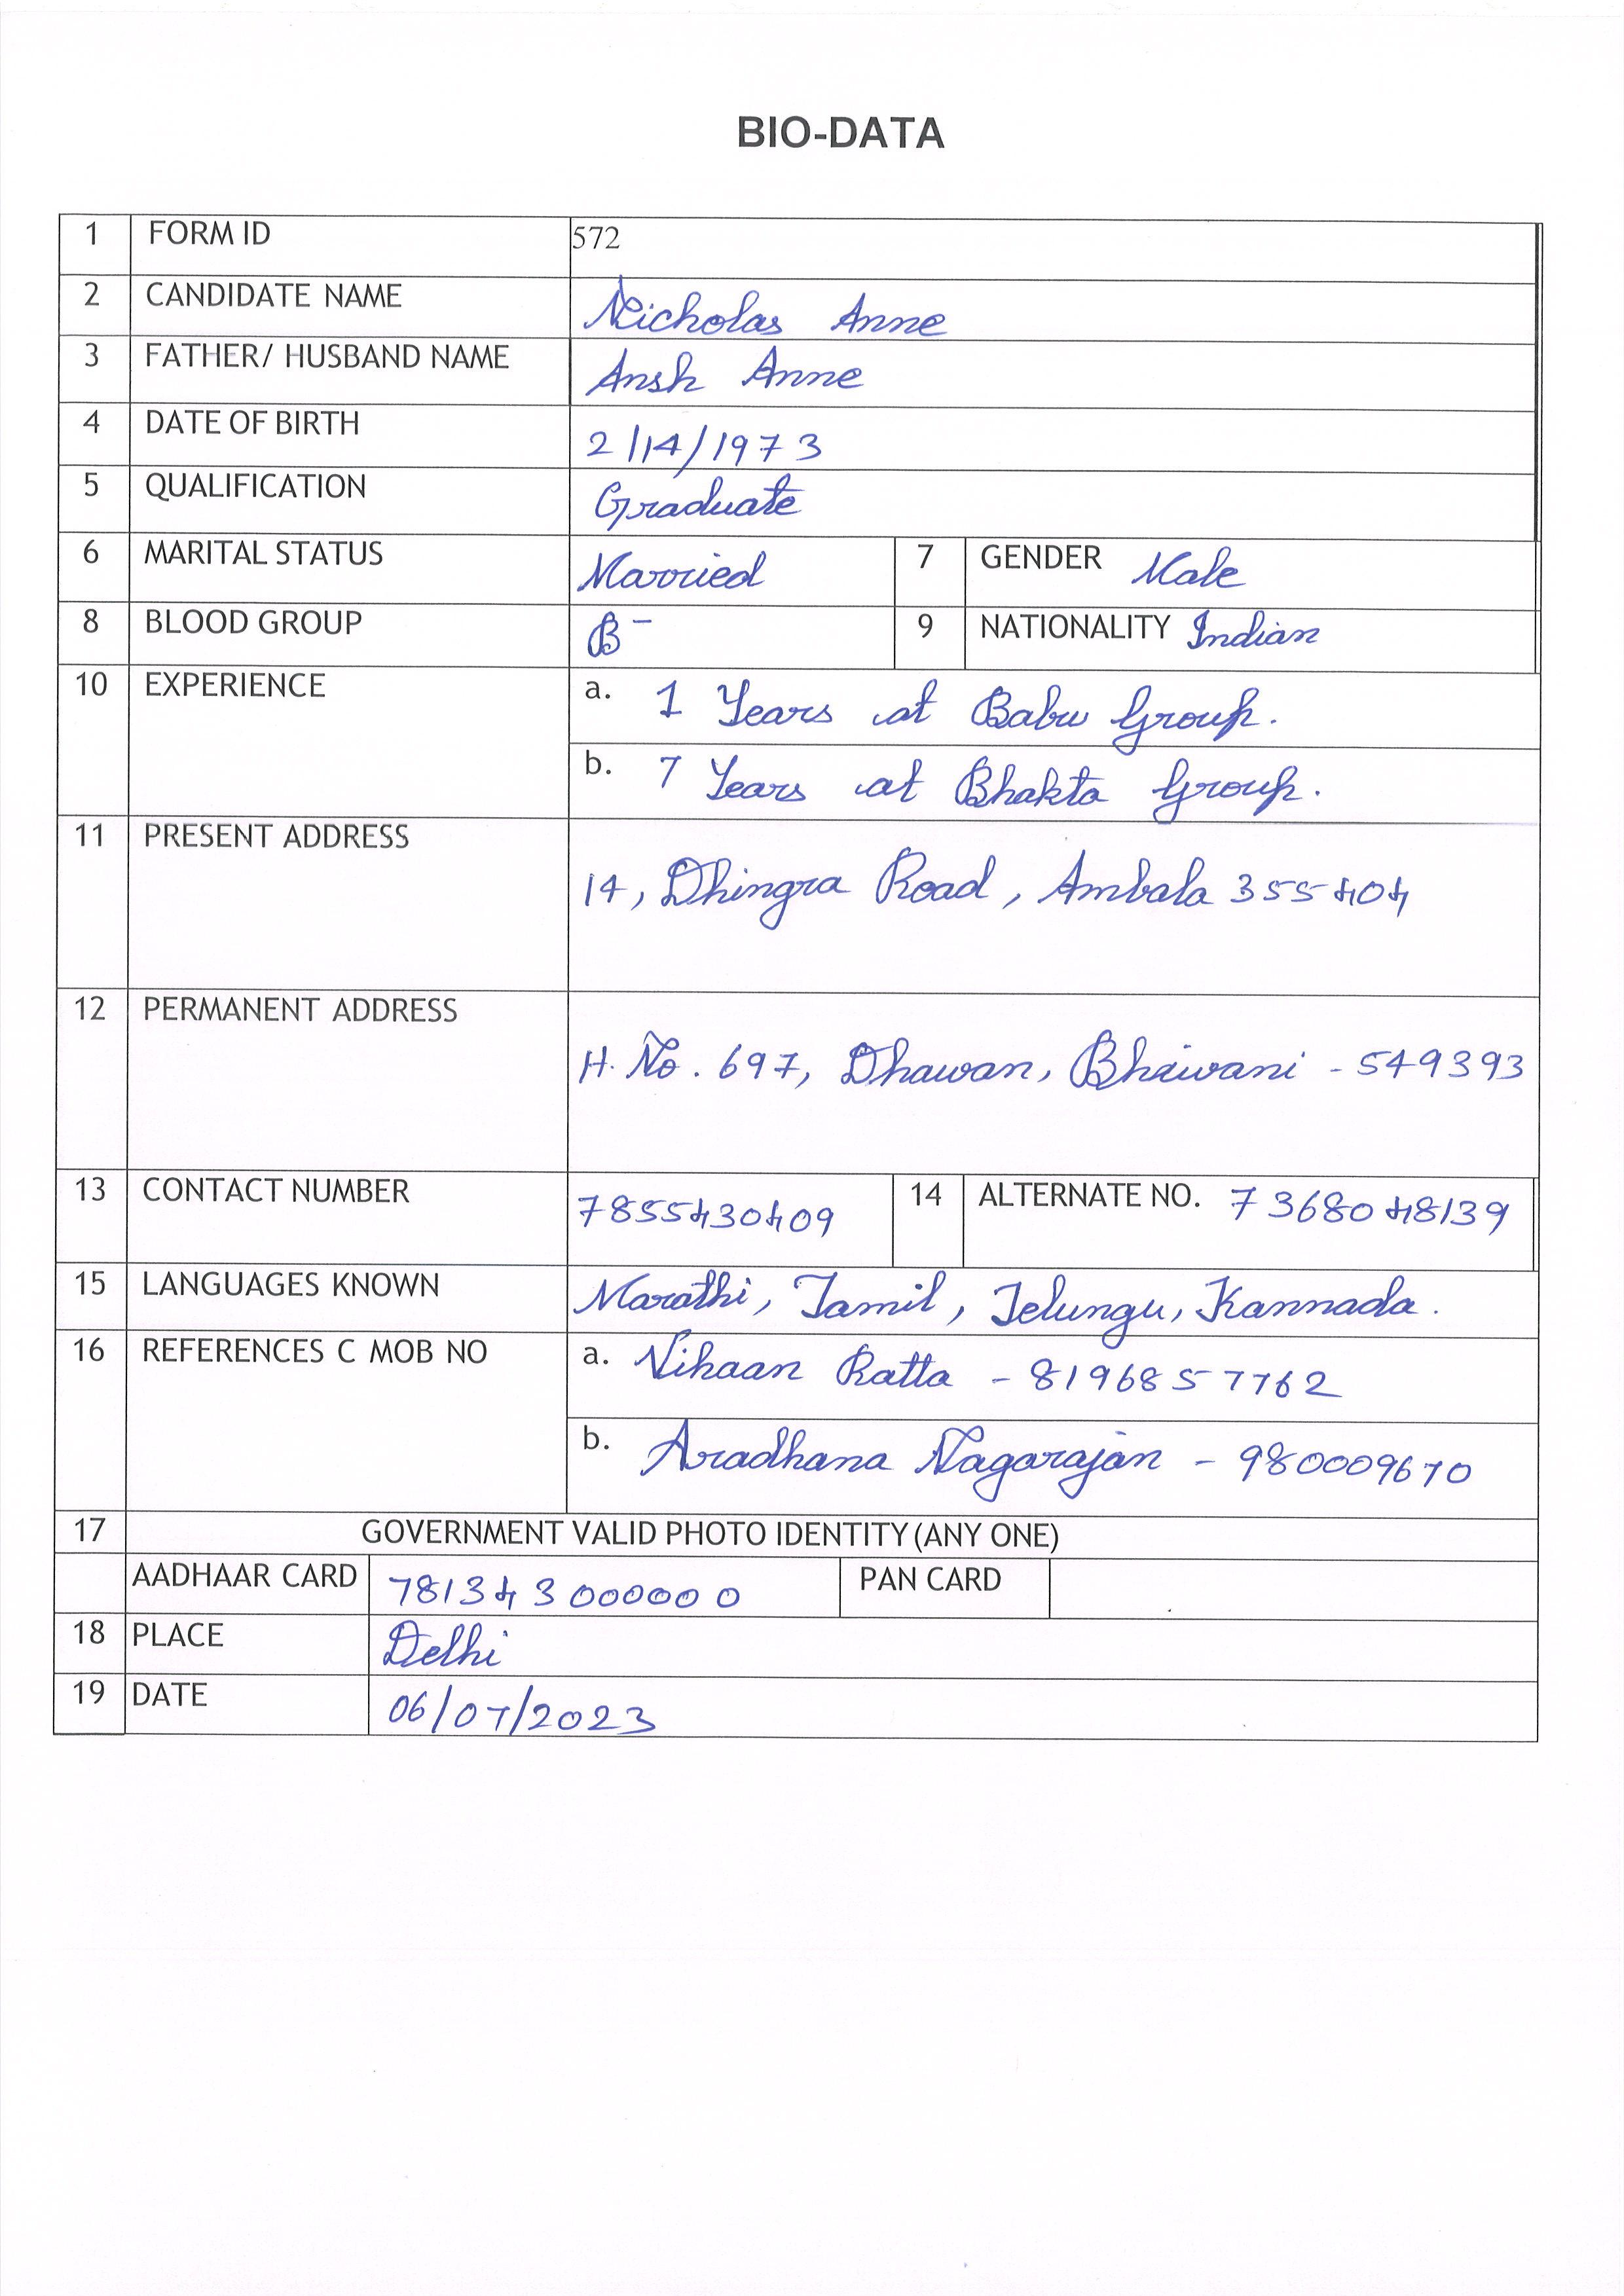 BIO-DATA
1 FORM ID 572
2 CANDIDATE NAME Nicholas Anne
3 FATHER/ HUSBAND NAME Ansh Anne
4 DATE OF BIRTH 2/14/1973
5 QUALIFICATION Graduate
6 MARITAL STATUS Married 7 GENDER Male
8 BLOOD GROUP B- 9 NATIONALITY Indian
10 EXPERIENCE a. 1 Years at Babu Group.
b. 7 Years at Bhakta Group.
11 PRESENT ADDRESS
14, Dhingra Road, Ambala 355404
12 PERMANENT ADDRESS
H. No. 697, Dhawan, Bhiwani - 549393
13 CONTACT NUMBER 7855430409 14 ALTERNATE NO. 7368048139
15 LANGUAGES KNOWN Marathi, Tamil, Telungu, Kannada.
16 REFERENCES C MOB NO a. Vihaan Ratta - 8196857762
b. Aradhana Nagarajan - 980009670
17 GOVERNMENT VALID PHOTO IDENTITY (ANY ONE)
AADHAAR CARD 781343000000 PAN CARD
18 PLACE Delhi
19 DATE 06/07/2023